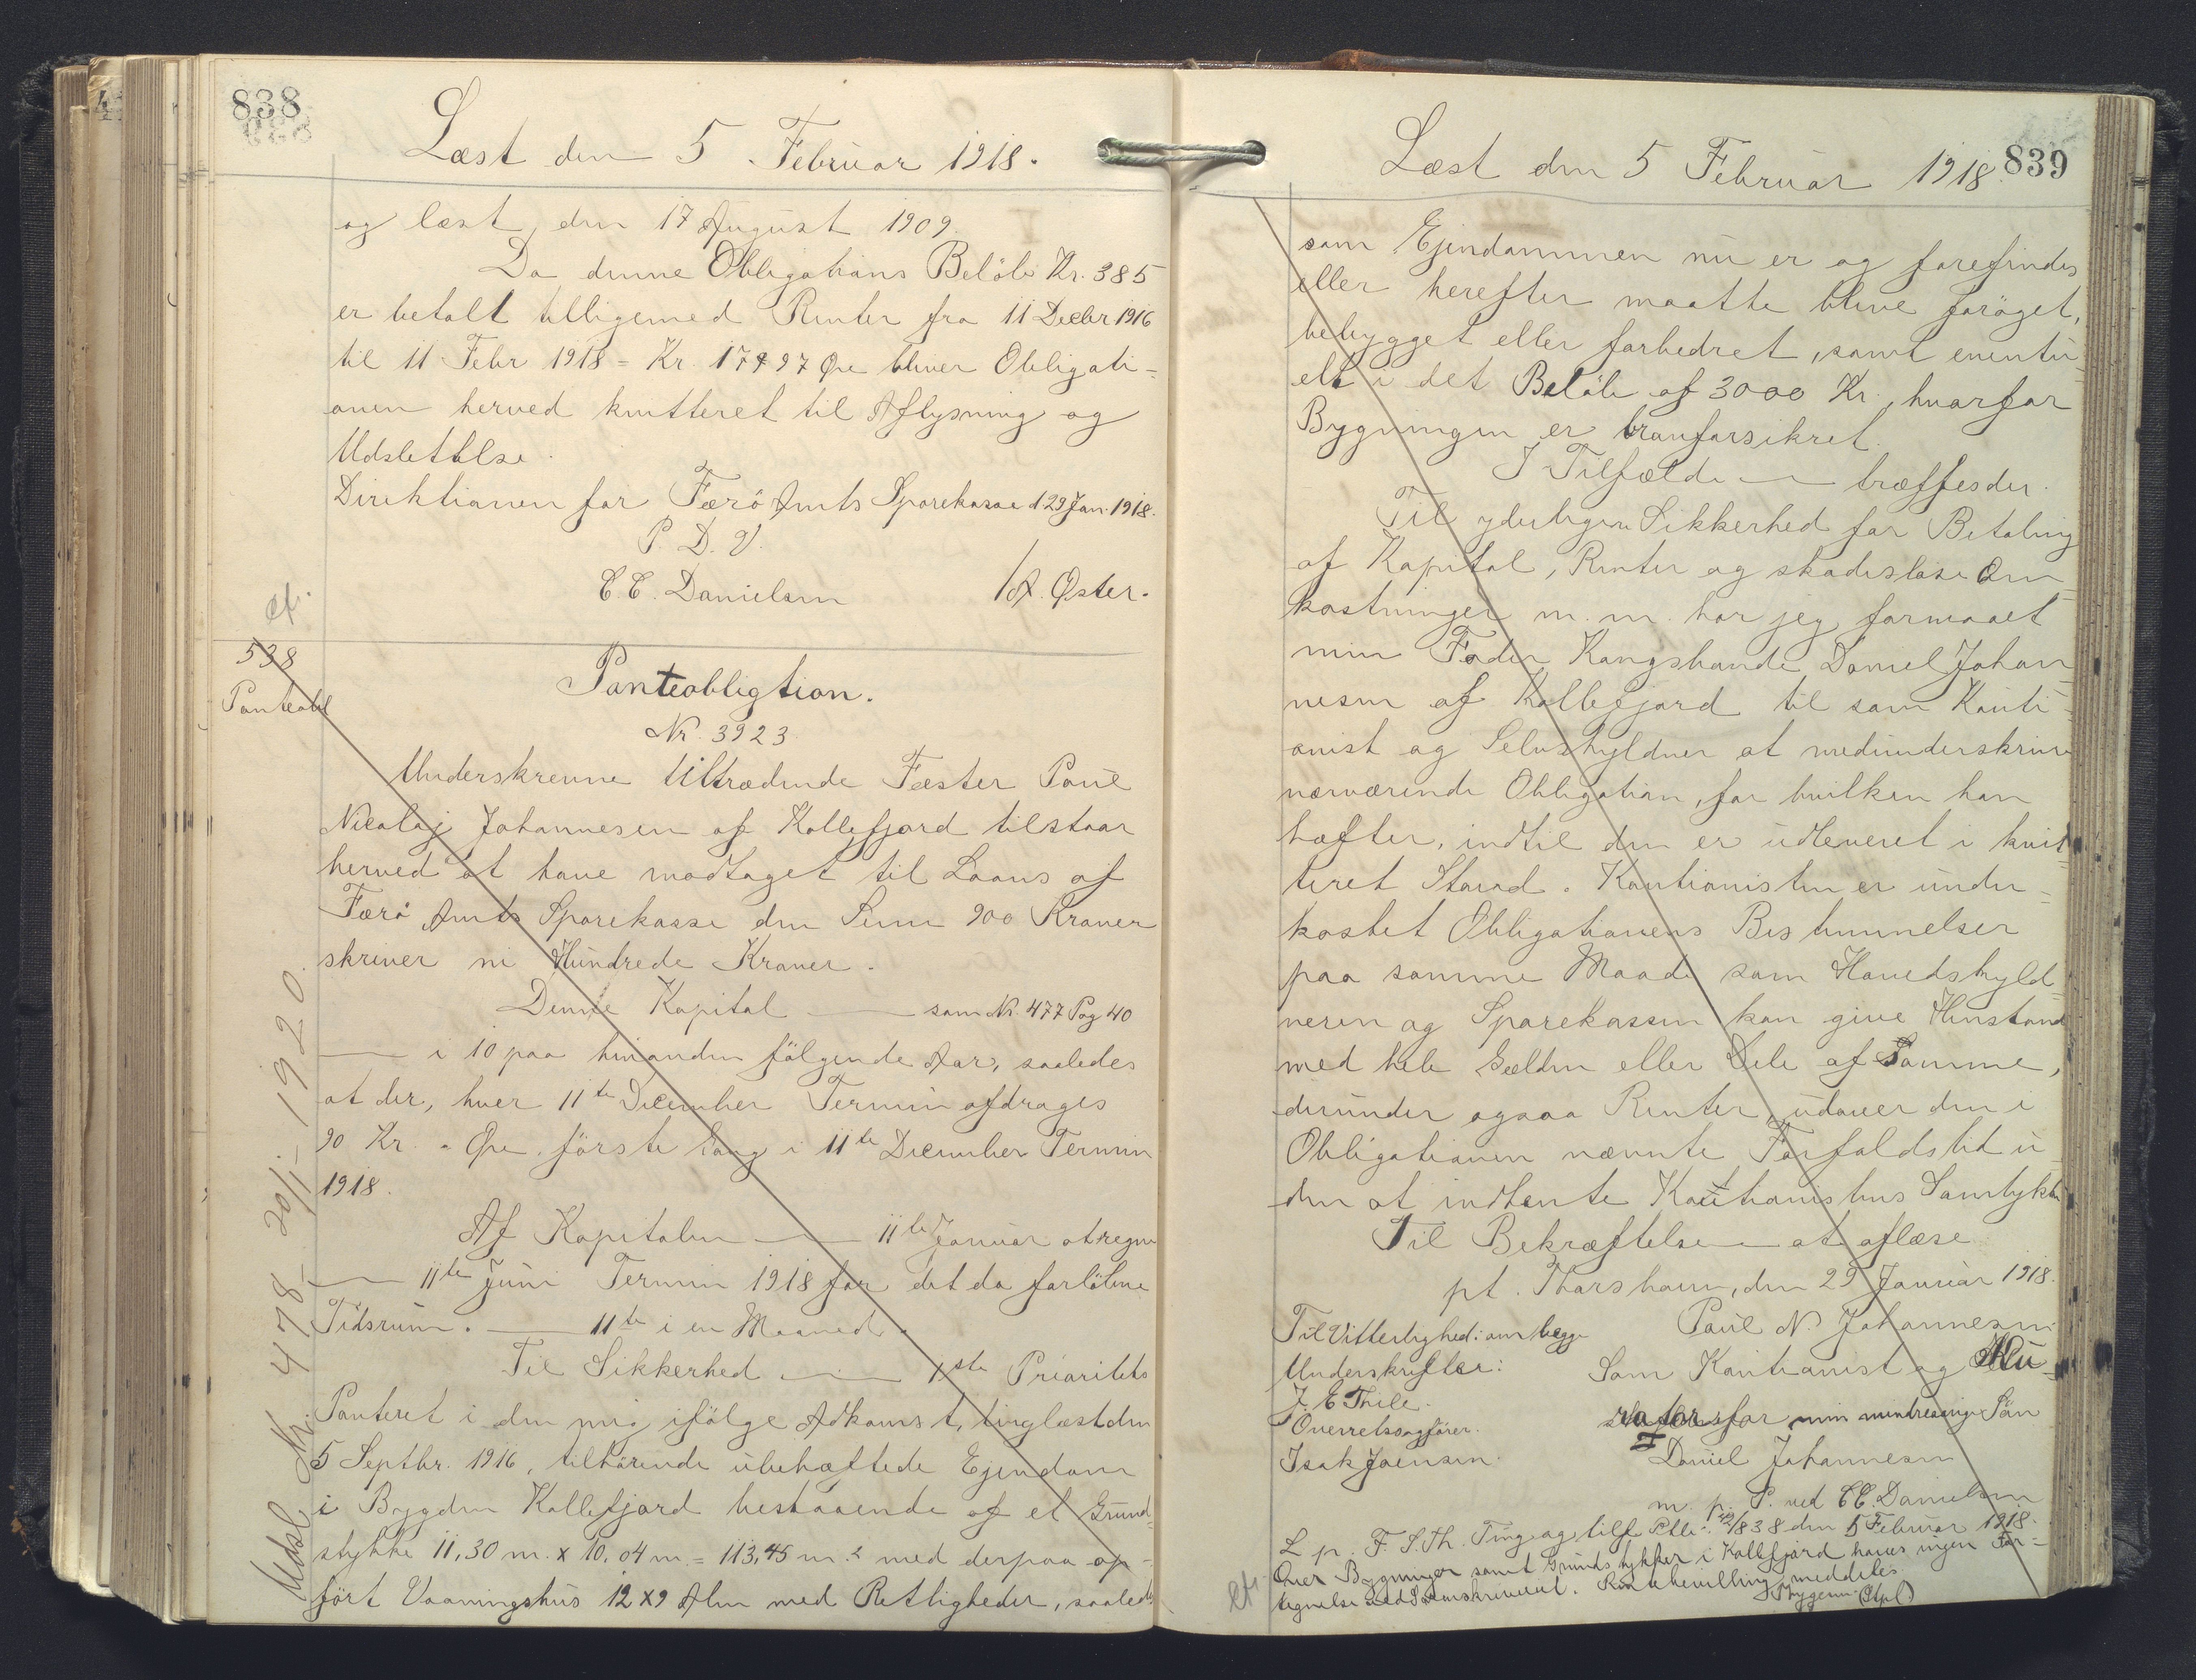 838
Læst den 5 Februar 1918.
og læst den 17 August 1909.
Da denne Obligations Beløb Kr. 385
er betalt tilligemed Renter fra 11 Decbr 1916
til 11 Febr 1918 = Kr. 17 97 Øre bliver Obligati-
onen herved kvitteret til Aflysning og
Udslettelse.
Direktionen for Færø Amts Sparekasse d 29 Jan. 1918.
P. D. V.
C. C. Danielsen / A. Øster.
538
Panteobl
Panteobligtion.
Nr. 3923
Underskrevne tiltrædende Fæster Poul
Nicolaj Johannesen af Kollefjord tilstaar
herved at have modtaget til Laans af
Færø Amts Sparekasse den Sum 900 Kroner
skriver ni Hundrede Kroner.
Denne Kapital — som Nr. 477 Pag 40
— i 10 paa hinanden følgende Aar, saaledes
at der, hver 11te December Termin afdrages
90 Kr. " Øre første Gang i 11te December Termin
1918.
Af Kapitalen — 11te Januar at regne
— 11te Juni Termin 1918 for det da forløbne
Tidsrum. — 11te i en Maaned.
Til Sikkerhed — 1ste Prioritets
Panteret i den mig ifølge Adkomst, tinglæst den
5 Septbr. 1916, tilhørende ubehæftede Ejendom
i Bygden Kollefjord bestaaende af et Grund-
stykke 11,30 m. x 10,04 m. = 113,45 m.2 med derpaa op-
ført Vaaningshus 12 x 9 Alen med Rettigheder, saaledes
Udsl. Nr. 478 - 20/1 - 1920.
839
Læst den 5 Februar 1918
som Ejendommen nu er og forefindes
eller herefter maatte blive forøget,
bebygget eller forbedret, samt eventu-
elt i det Beløb af 3000 Kr., hvorfor
Bygningen er branforsikret.
I Tilfælde — træffes der.
Til yderligere Sikkerhed for Betaling
af Kapital, Renter og skadesløse Om-
kostninger m. m. har jeg formaaet
min Fader Kongsbonde Daniel Johan-
nesen af Kollefjord til som Kauti-
onist og Selvskyldner at medunderskrive
nærværende Obligation, for hvilken han
hæfter, indtil den er udleveret i kvit-
teret Stand. Kautionisten er under-
kastet Obligationens Bestemmelser
paa samme Maade som Hovedskyld-
neren og Sparekassen kan give Henstand
med hele Gælden eller Dele af Samme,
derunder ogsaa Renter, udover den i
Obligationen nævnte Forfaldstid u-
den at indhente Kautionistens Samtykke
Til Bekræftelse — at aflæse
pt. Thorshavn, den 29 Januar 1918.
Til Vitterlighed: om begge
Underskrifter:
J. E Thile.
Overretssagfører.
Isak Joensen.
Poul N. Johannesen
Som Kautionist og Ku-
rator for min mindreaarige Søn
Daniel Johannesen
m. p. P. ved C C. Danielsen
L p. F. S. Th. Ting og tilf Ptb. 838 den 5 Februar 1918.
Over Bygninger samt Grundstykker i Kollefjord haves ingen For-
tegnelse. Rentebevilling meddeles
(Stpl.)